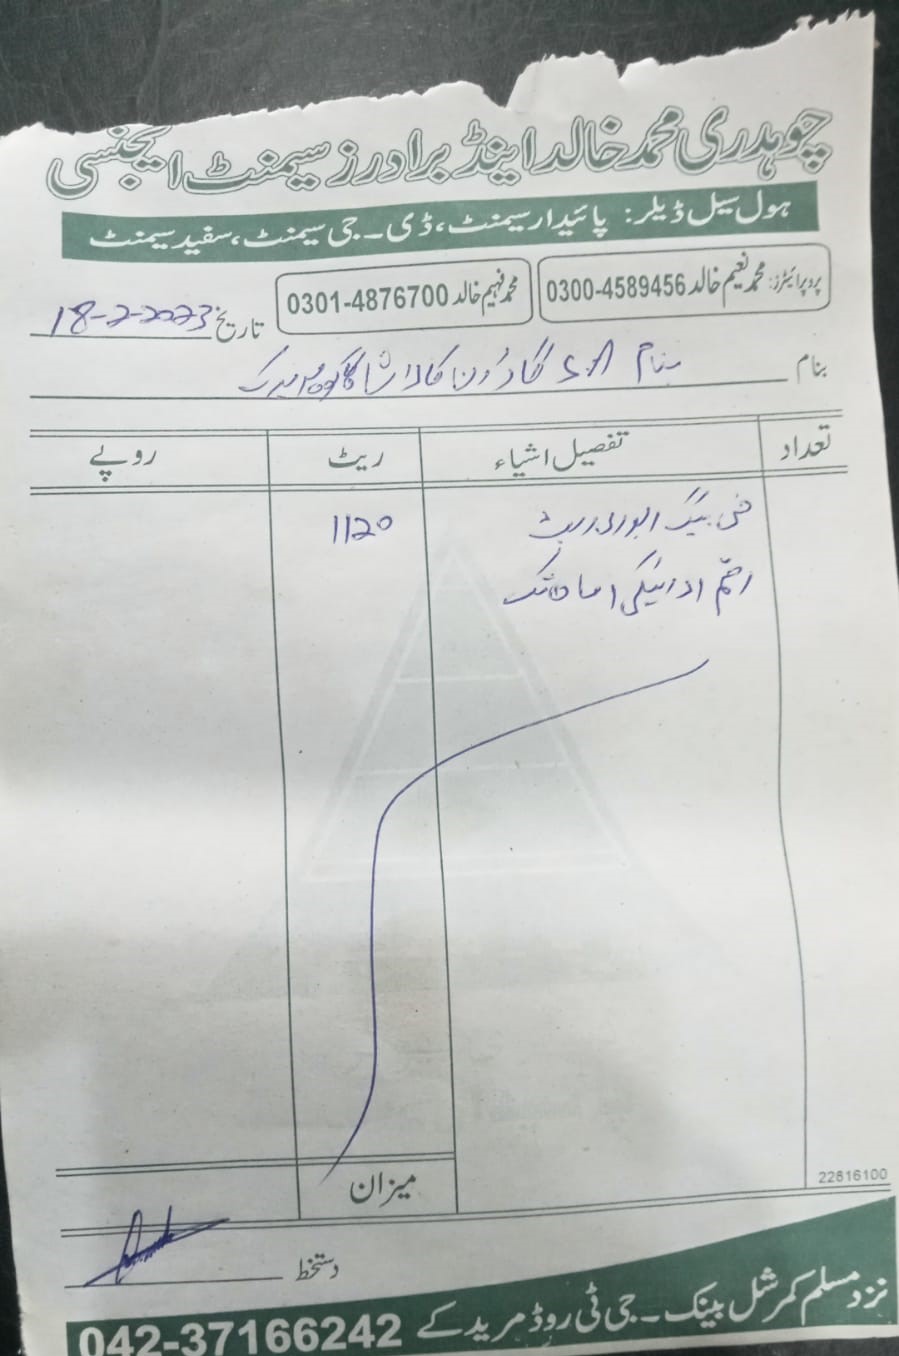 چوہدری محمد خالد اینڈ برادرز سیمنٹ ایجنسی
ہول سیل ڈیلر: پائیدار سیمنٹ، ڈی۔جی سیمنٹ، سفید سیمنٹ
پروپرائیٹرز: محمد نعیم خالد 0300-4589456 محمد فہیم خالد 0301-4876700
تاریخ 18-2-2023
بنام بنام
تعداد تفصیل اشیاء ریٹ روپے
فی بیگ 1120
رقم ادائیگی
میزان
22616100
دستخط
نزد مسلم کمرشل بینک۔ جی ٹی روڈ مریدکے 042-37166242